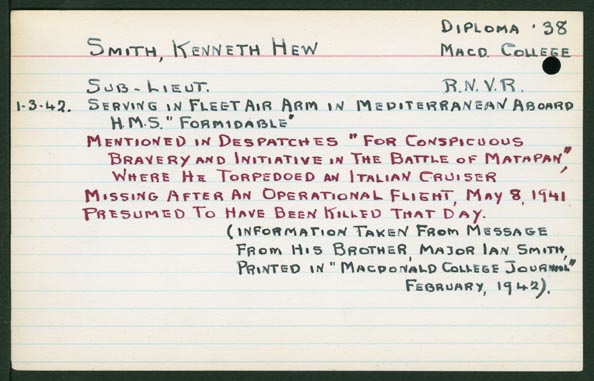 DIPLOMA '38
SMITH, KENNETH HEW MACD. COLLEGE
SUB-LIEUT. R.N.V.R.
1-3-42. SERVING IN FLEET AIR ARM IN MEDITERRANEAN ABOARD
H.M.S. "FORMIDABLE"
MENTIONED IN DESPATCHES "FOR CONSPICUOUS
BRAVERY AND INITIATIVE IN THE BATTLE OF MATAPAN",
WHERE HE TORPEDOED AN ITALIAN CRUISER
MISSING AFTER AN OPERATIONAL FLIGHT, MAY 8, 1941
PRESUMED TO HAVE BEEN KILLED THAT DAY.
(INFORMATION TAKEN FROM MESSAGE
FROM HIS BROTHER, MAJOR IAN SMITH,
PRINTED IN "MACDONALD COLLEGE JOURNAL"
FEBRUARY, 1942).